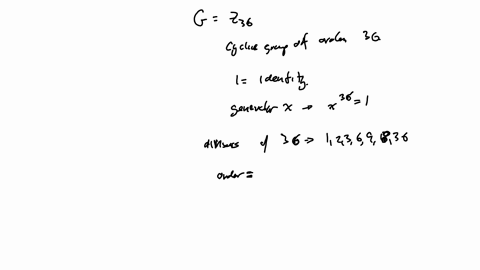 G = Z36
Cyclic group of order 36
1 = identity.
generator x → x^36 = 1
divisors of 36 → 1, 2, 3, 6, 9, 18, 36
order =